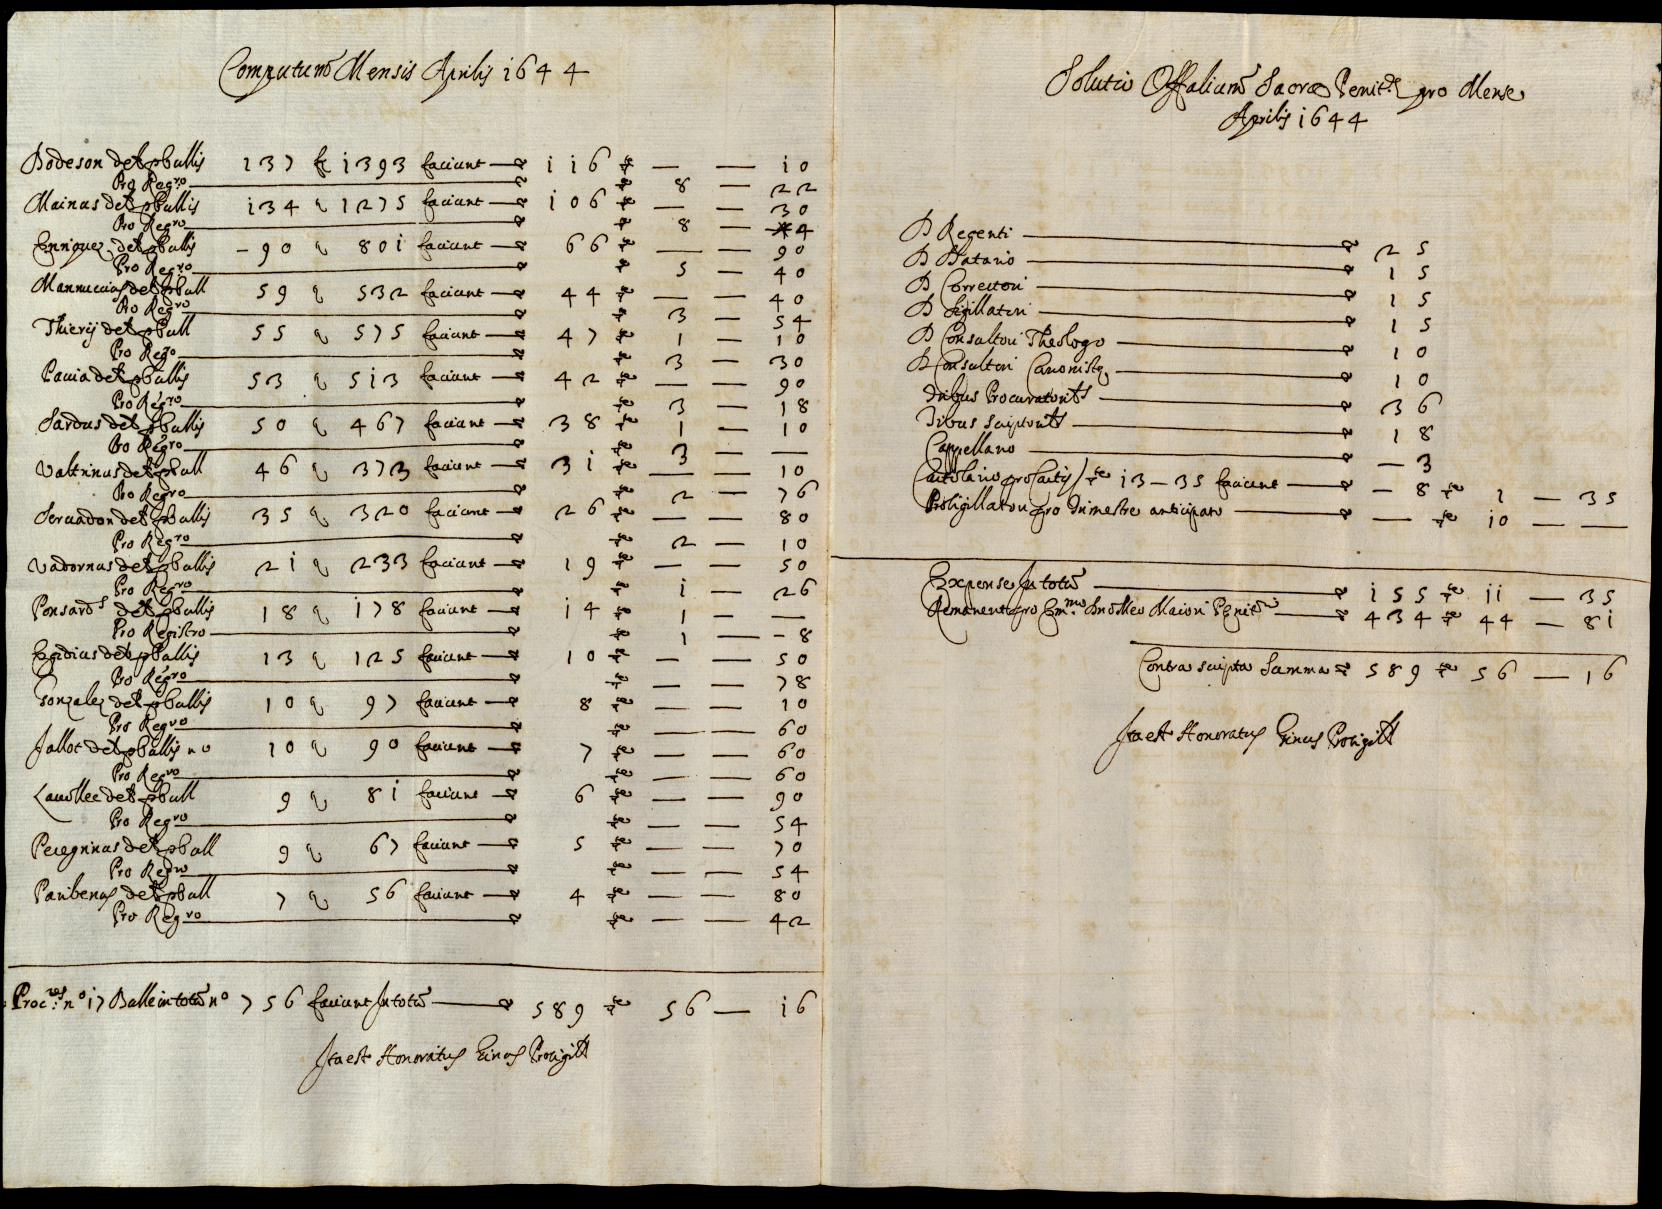 Computum Mensis Aprilis 1644
Bodeson det p bullis 137 & 1393 faciunt 116 — — 10
Pro Regro 8 — 22
Mainus det p bullis 134 & 1275 faciunt 106 — — 30
Pro Regro 8 — 4
Enriquez det p bullis – 90 & 801 faciunt 66 — — 90
Pro Regro 5 — 40
Mannuccius det p bull 59 & 532 faciunt 44 — — 40
Pro Regro 3 — 54
Thierij det p bull 55 & 575 faciunt 47 1 — 10
Pro Regro 3 — 30
Pavia det p bullis 53 & 513 faciunt 42 — — 90
Pro Regro 3 — 18
Sardus det p bullis 50 & 467 faciunt 38 1 — 10
Pro Regro 3 — —
Valtrinus det p bull 46 & 373 faciunt 31 — — 10
Pro Regro 2 — 76
Servadon det p bullis 35 & 320 faciunt 26 — — 80
Pro Regro 2 — 10
Vadornus det p bullis 21 & 233 faciunt 19 — — 50
Pro Regro 1 — 26
Ponsards det p bullis 18 & 178 faciunt 14 1 — —
Pro Registro 1 — – 8
Egidius det p bullis 13 & 125 faciunt 10 — — 50
Pro Regro — — 78
Gonzalez det p bullis 10 & 97 faciunt 8 — — 10
Pro Regro — — 60
Jallot det p bullis no 10 & 90 faciunt 7 — — 60
Pro Regro — — 60
Lavollee det p bull 9 & 81 faciunt 6 — — 90
Pro Regro — — 54
Peregrinus det p bull 9 & 67 faciunt 5 — — 70
Pro Regro — — 54
Paribenus det p bull 7 & 56 faciunt 4 — — 80
Pro Regro — — 42
Procres no 17 Bulle in totum no 756 faciunt In totum 589 56 — 16
Ita est Honoratus Proligill
Solutio Offalium Sacrae Penit. pro Mense
Aprilis 1644
D Regenti 25
D Datario 15
D Correctori 15
D Sigillatori 15
D Consultori Theologo 10
D Consultori Canonistae 10
Duibus Procuratoribs 36
Duibus scriptoribs 18
Cappellano – 3
Cartolario pro Cartis 13 – 35 faciunt – 8 1 — 35
Prosigillatori pro trimestre anticipato — 10 — —
Expense In totum 155 11 — 35
Remanent pro Emmo Dno Meo Maiori Penit. 434 44 — 81
Contra scripta Summa 589 56 — 16
Ita est Honoratus Prosigill